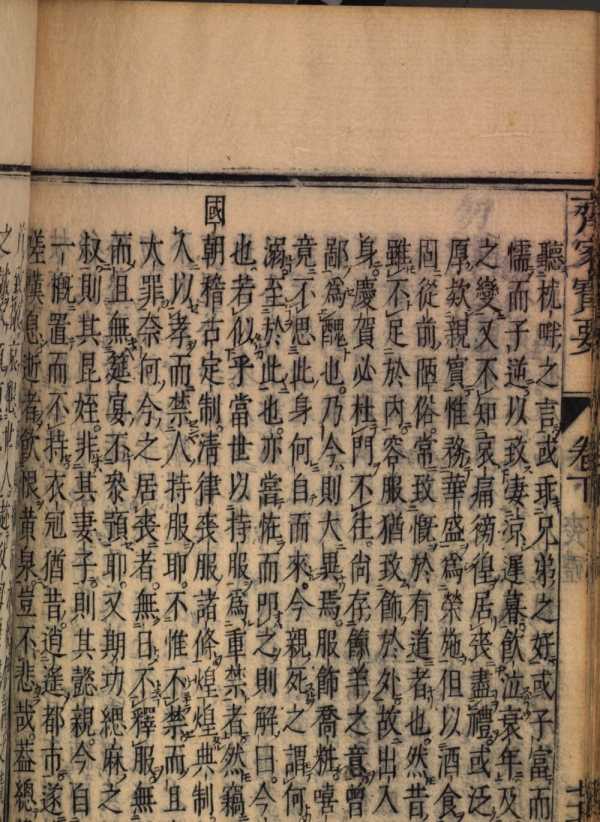 齊家寶要
卷下
喪禮
聽枕畔之言或乖兄弟之好或子富而
懦而子逆以致妻涼遲暮飲泣衰年及
之變又不知哀痛徬徨居喪盡禮或泛
厚款親賓惟務華盛為榮施但以酒食
囿從前陋俗常致慨於有道者也然昔
雖不足於內容服猶致飾於外故出入
身慶賀必杜門不往尚存餼羊之意曾
鄙為醜也乃今則大異焉服飾喬粧嘻
竟不思此身何自而來今親死之謂何
溺至於此也亦嘗怪而叩之則解曰今
也若似乎當世以持服為重禁者然竊
國朝稽古定制清律喪服諸條煌煌典制
人以孝而禁人持服耶不惟不禁而且
大罪奈何今之居喪者無日不釋服無
而且無筵宴不叅預耶又期功緦麻之
叔則其昆姪非其妻子則其懿親今自
一概置而不持衣冠猶昔逍遥都市遂
嗟嘆息逝者飲恨黃泉豈不悲哉葢總